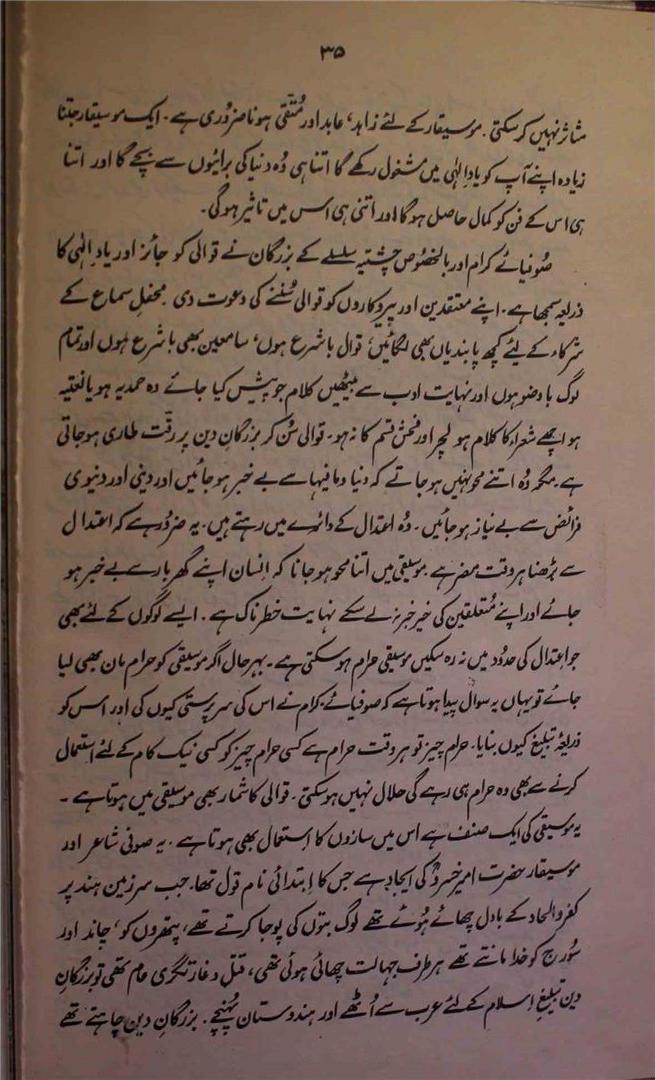 ۳۵
متاثر نہیں کرسکتی۔ موسیقار کے لئے زاہد، عابد اور مُتّقی ہونا ضرُوری ہے۔ ایک موسیقار جتنا
زیادہ اپنے آپ کو یادِ الٰہی میں مشغول رکھے گا اتنا ہی وُہ دنیا کی برائیوں سے بچے گا اور اتنا
ہی اس کے فن کو کمال حاصل ہوگا اور اتنی ہی اس میں تاثیر ہوگی۔
صُوفیائے کرام اور بالخصُوص چشتیہ سلسلے کے بزرگان نے قوالی کو جائز اور یادِ الٰہی کا
ذریعہ سمجھا ہے۔ اپنے معتقدین اور پیروکاروں کو قوالی سُننے کی دعوت دی۔ محفلِ سماع کے
شرکاء کے لئے کچھ پابندیاں بھی لگائیں، قوال باشرع ہوں، سامعین بھی باشرع ہُوں اور تمام
لوگ باوضو ہوں اور نہایت ادب سے بیٹھیں کلام جو پیش کیا جائے وہ حمدیہ ہو یا نعتیہ
ہو اچھے شعراء کا کلام ہو لچر اور فحش قسم کا نہ ہو۔ قوالی سُن کر بزرگانِ دین پر رقّت طاری ہوجاتی
ہے۔ مگر وُہ اتنے محو نہیں ہو جاتے کہ دنیا و مافیہا سے بے خبر ہو جائیں اور دینی اور دنیوی
فرائض سے بے نیاز ہو جائیں۔ وُہ اعتدال کے دائرے میں رہتے ہیں۔ یہ ضرور ہے کہ اعتدال
سے بڑھنا ہر وقت مضر ہے۔ موسیقی میں اتنا محو ہو جانا کہ انسان اپنے گھر بار سے بے خبر ہو
جائے اور اپنے مُتعلقین کی خیر خبر نہ لے سکے نہایت خطرناک ہے۔ ایسے لوگوں کے لئے بھی
جو اعتدال کی حدُود میں نہ رہ سکیں موسیقی حرام ہوسکتی ہے۔ بہرحال اگر موسیقی کو حرام مان بھی لیا
جائے تو یہاں یہ سوال پیدا ہوتا ہے کہ صوفیائے کرام نے اس کی سرپرستی کیوں کی اور اس کو
ذریعۂ تبلیغ کیوں بنایا۔ حرام چیز تو ہر وقت حرام ہے کسی حرام چیز کو کسی نیک کام کے لئے استعمال
کرنے سے بھی وہ حرام ہی رہے گی حلال نہیں ہوسکتی۔ قوالی کا شمار بھی موسیقی میں ہوتا ہے۔
یہ موسیقی کی ایک صنف ہے اس میں سازوں کا استعمال بھی ہوتا ہے۔ یہ صوفی شاعر اور
موسیقار حضرت امیر خسروؒ کی ایجاد ہے جس کا اِبتدائی نام قول تھا۔ جب سرزمین ہند پر
کفر و الحاد کے بادل چھائے ہُوئے تھے لوگ بتوں کی پوجا کرتے تھے، پتھروں کو، چاند اور
سُورج کو خدا مانتے تھے ہر طرف جہالت چھائی ہوئی تھی، قتل و غارتگری عام تھی تو بزرگانِ
دین تبلیغِ اسلام کے لئے عرب سے اُٹھے اور ہندوستان پُہنچے۔ بزرگانِ دین چاہتے تھے